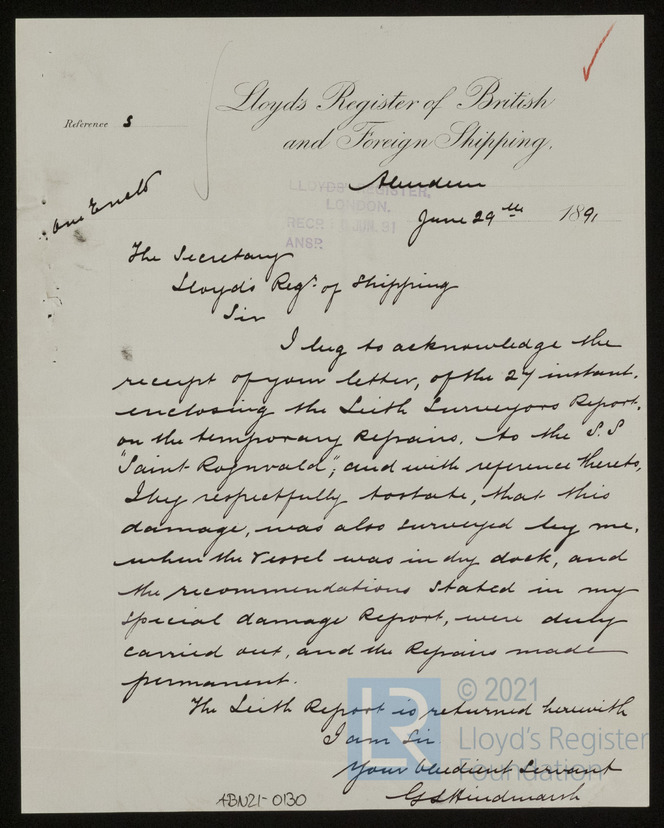 Lloyd's Register of British
and Foreign Shipping.
Reference S
Aberdeen
LLOYD'S REGISTER,
LONDON.
RECD JUN. 91
ANSR
June 29th 1891
one Enclo
The Secretary
Lloyd's Regr of Shipping
Sir
I beg to acknowledge the
receipt of your letter, of the 27 instant.
enclosing the Leith Surveyors Report,
on the temporary Repairs, to the S.S
"Saint Rognvald"; and with reference thereto,
I beg respectfully to state, that this
damage, was also surveyed by me,
when the vessel was in dry dock, and
the recommendations stated in my
special damage Report, were duly
carried out, and the Repairs made
permanent.
The Leith Report is returned herewith
I am Sir.
Your Obedient Servant
G S Hindmarsh
ABN21-0130
LR
© 2021
Lloyd's Register
Foundation